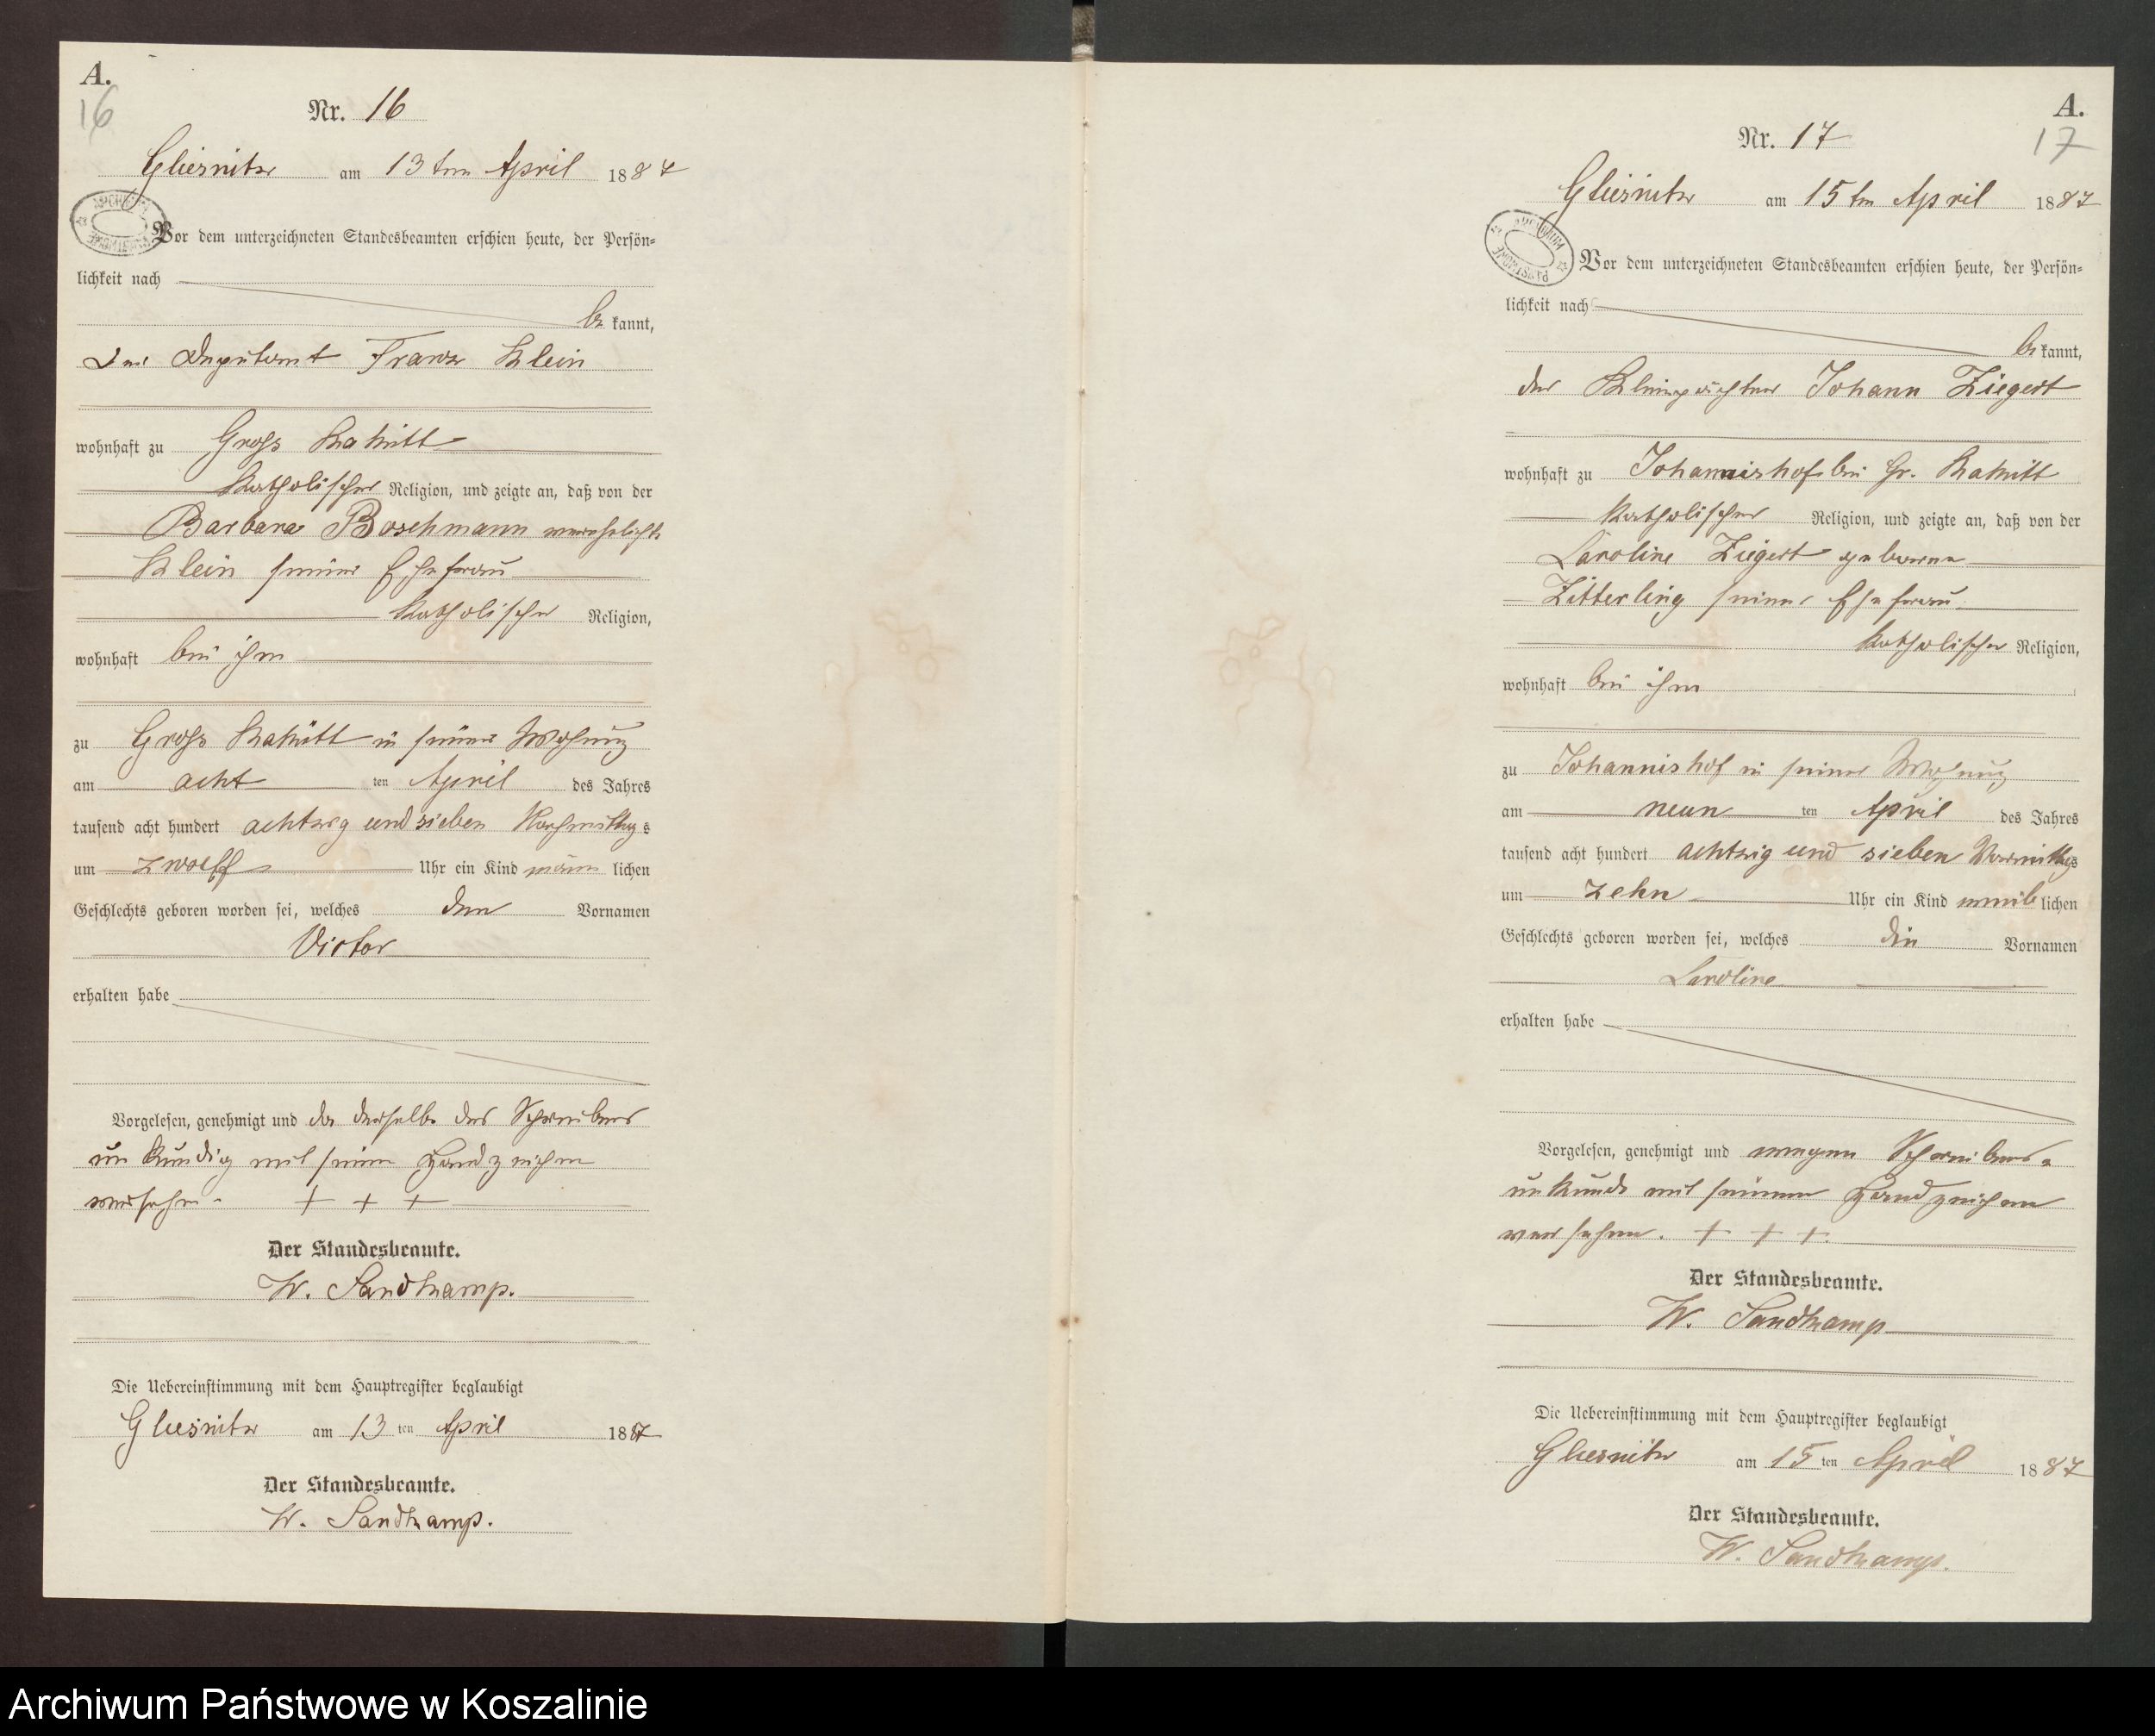 A.
16
Nr. 16
Gliesnitz am 13ten April 1887
Vor dem unterzeichneten Standesbeamten erschien heute, der Persön=
lichkeit nach
be kannt,
Der Deputant Franz Klein
wohnhaft zu Gross Katkitt
katholischer Religion, und zeigte an, daß von der
Barbara Boschmann verehelicht.
Klein seiner Ehefrau
katholischer Religion,
wohnhaft bei ihm
zu Gross Katkitt in seiner Wohnung
am acht ten April des Jahres
tausend acht hundert achtzig und sieben Nachmittags
um zwoelf Uhr ein Kind männ lichen
Geschlechts geboren worden sei, welches den Vornamen
Victor
erhalten habe
Vorgelesen, genehmigt und da derselbe des Schreibens
unkundig mit seinem Handzeichen
versehen. + + +
Der Standesbeamte.
W. Sandkamp.
Die Uebereinstimmung mit dem Hauptregister beglaubigt
Gliesnitz am 13 ten April 1887
Der Standesbeamte.
W. Sandkamp.
A.
17
Nr. 17
Gliesnitz am 15ten April 1887
Vor dem unterzeichneten Standesbeamten erschien heute, der Persön=
lichkeit nach
be kannt,
der Johann Ziegert
wohnhaft zu Johannishof bei Gr. Katkitt
katholischer Religion, und zeigte an, daß von der
Caroline Ziegert geborne
Zitterling seiner Ehefrau
katholischer Religion,
wohnhaft bei ihm
zu Johannishof in seiner Wohnung
am neun ten April des Jahres
tausend acht hundert achtzig und sieben Vormittags
um zehn Uhr ein Kind weib lichen
Geschlechts geboren worden sei, welches den Vornamen
Caroline
erhalten habe
Vorgelesen, genehmigt und wegen Schreibens=
unkunde mit seinem Handzeichen
versehen. + + +.
Der Standesbeamte.
W. Sandkamp
Die Uebereinstimmung mit dem Hauptregister beglaubigt
Gliesnitz am 15 ten April 1887
Der Standesbeamte.
W. Sandkamp.
Archiwum Państwowe w Koszalinie